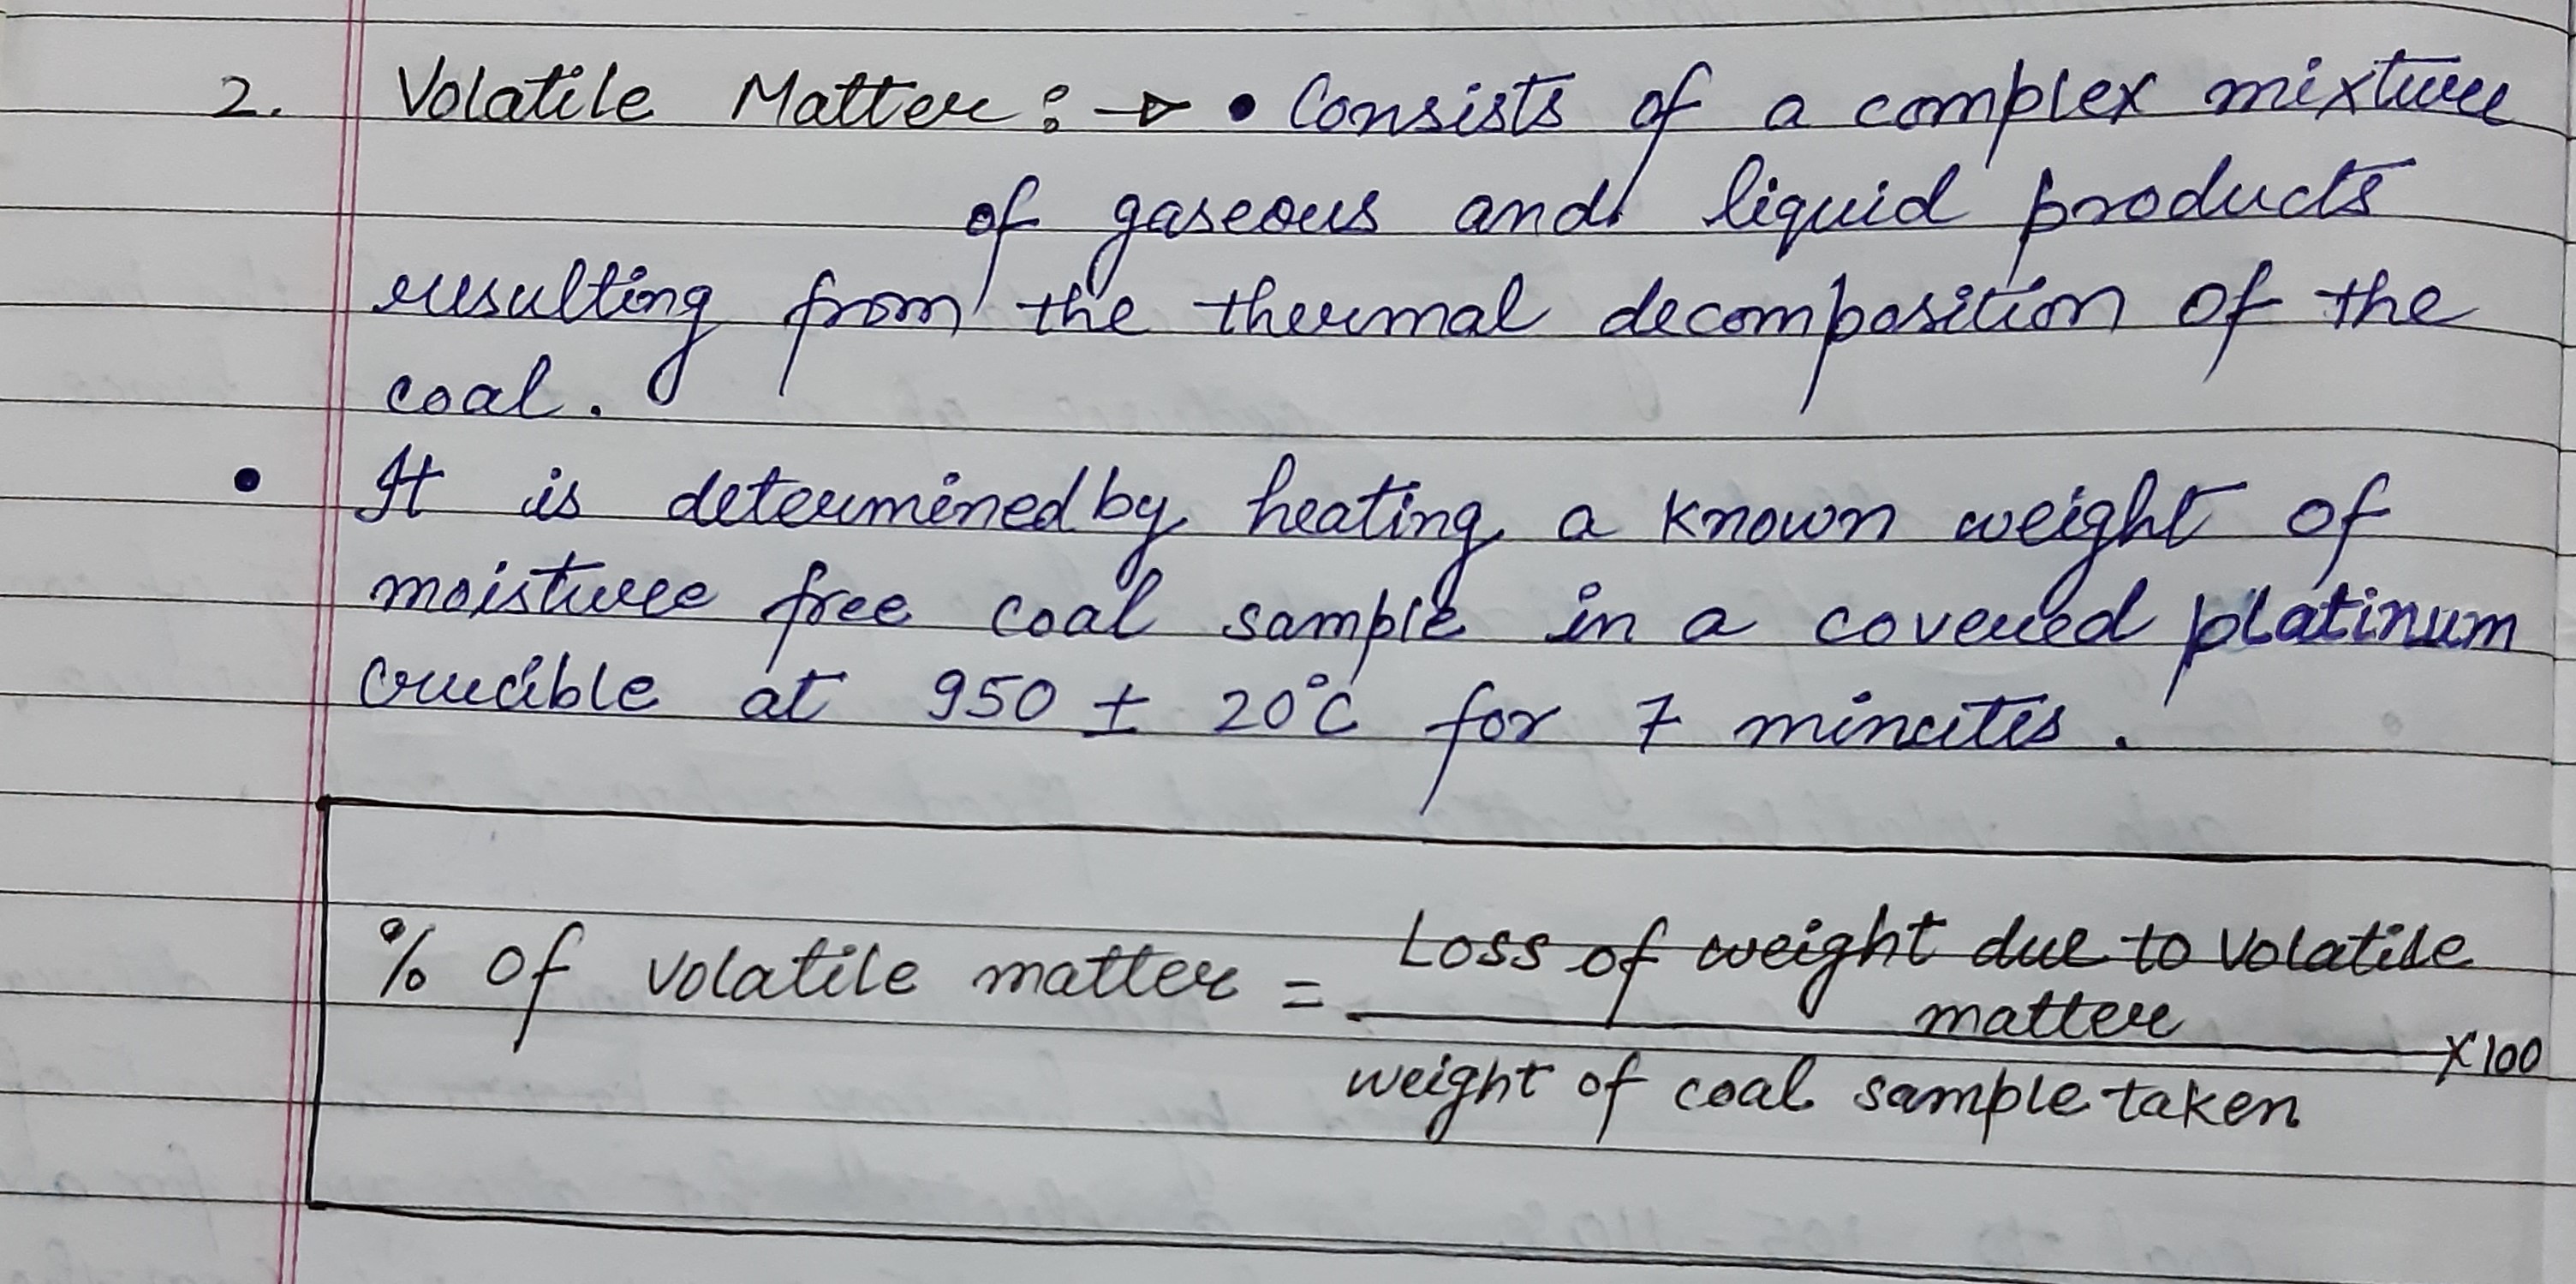 2. Volatile Matter : → • Consists of a complex mixture
of gaseous and liquid products
resulting from the thermal decomposition of the
coal.
• It is determined by heating a known weight of
moisture free coal sample in a covered platinum
crucible at 950 ± 20°C for 7 minutes.
% of volatile matter = Loss of weight due to volatile
matter
×100
weight of coal sample taken